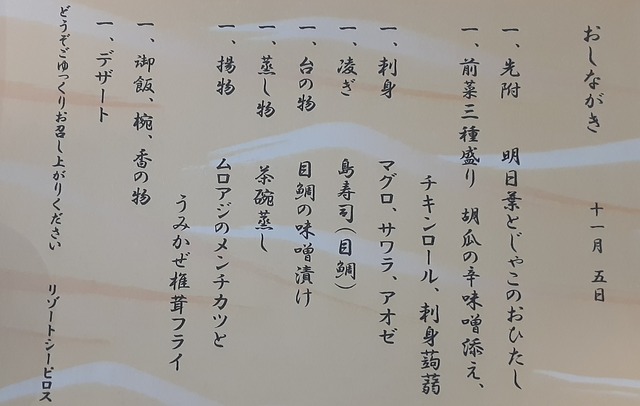 おしながき
十一月 五日
一、先附 明日葉とじゃこのおひたし
一、前菜三種盛り 胡瓜の辛味噌添え、
チキンロール、刺身蒟蒻
一、刺身 マグロ、サワラ、アオゼ
一、凌ぎ 島寿司(目鯛)
一、台の物 目鯛の味噌漬け
一、蒸し物 茶碗蒸し
一、揚物 ムロアジのメンチカツと
うみかぜ椎茸フライ
一、御飯、椀、香の物
一、デザート
どうぞごゆっくりお召し上がりください
リゾートシーピロス